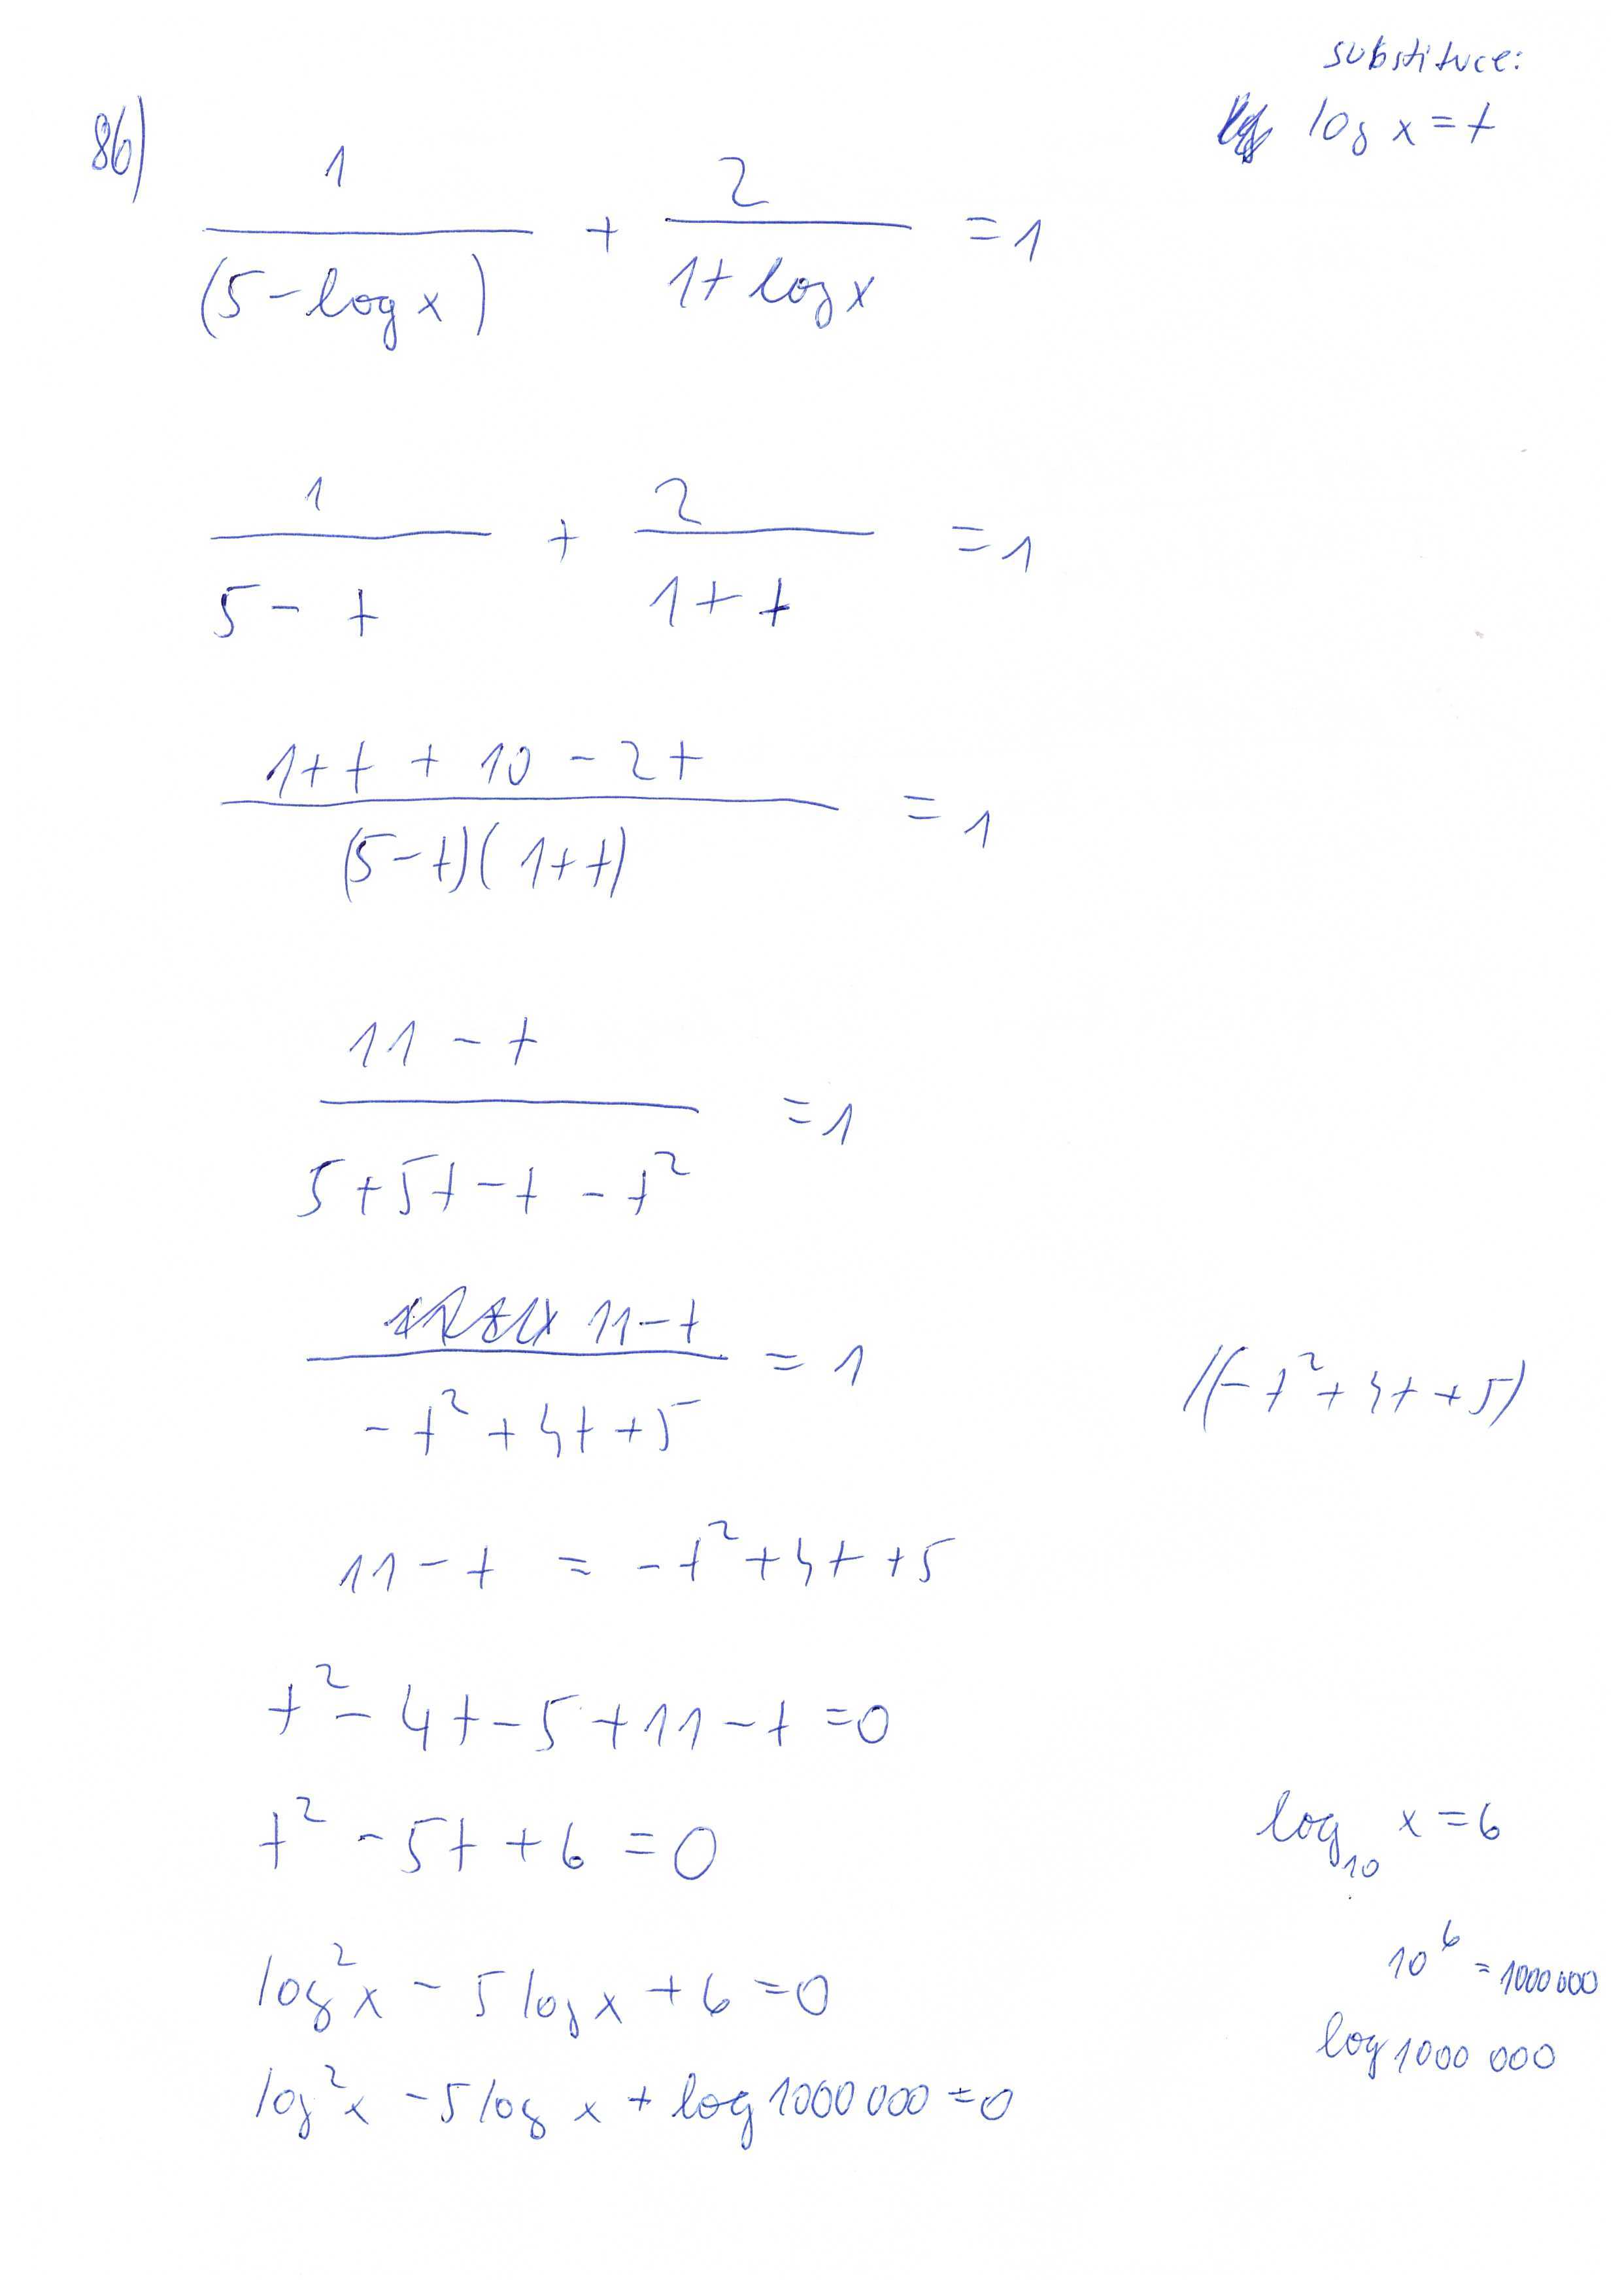 substituce:
86) log x = t
1/(5 - log x) + 2/(1 + log x) = 1
1/(5 - t) + 2/(1 + t) = 1
(1 + t + 10 - 2t)/((5 - t)(1 + t)) = 1
(11 - t)/(5 + 5t - t - t²) = 1
(11 - t)/(-t² + 4t + 5) = 1 /(-t² + 4t + 5)
11 - t = -t² + 4t + 5
t² - 4t - 5 + 11 - t = 0
t² - 5t + 6 = 0
log₁₀ x = 6
10⁶ = 1000 000
log² x - 5 log x + 6 = 0
log 1000 000
log² x - 5 log x + log 1000 000 = 0